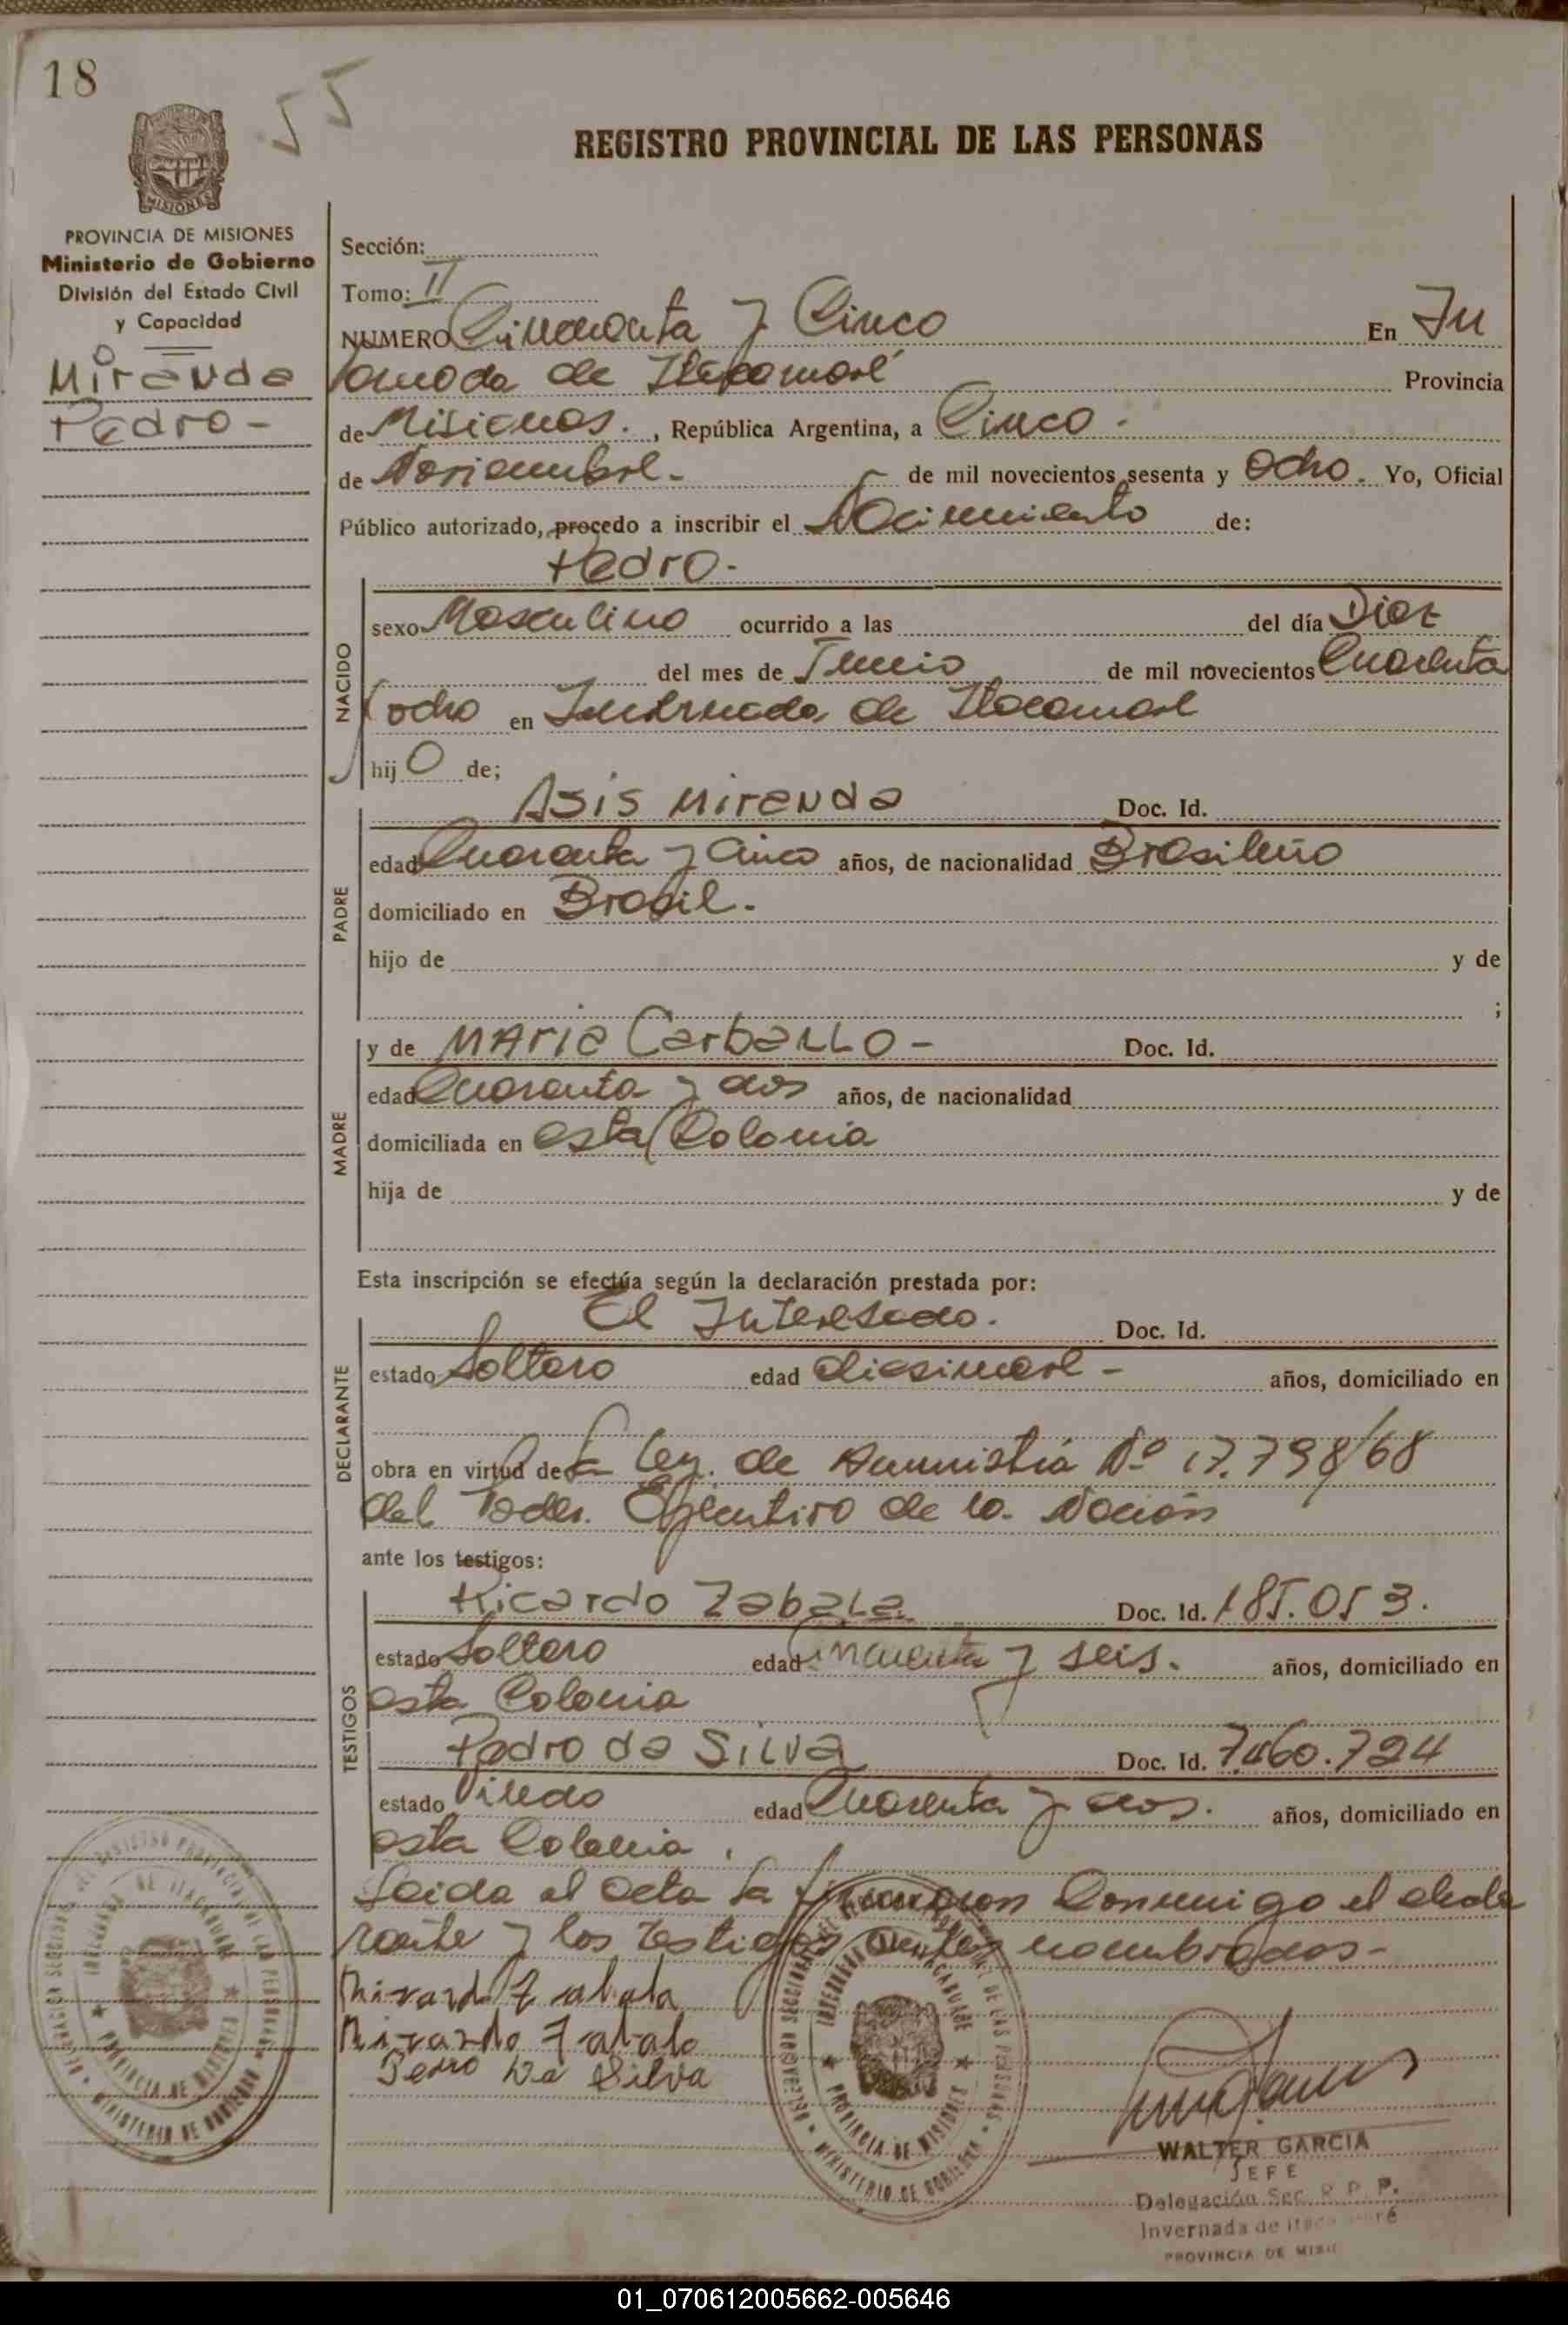 18
55
REGISTRO PROVINCIAL DE LAS PERSONAS
MISIONES
PROVINCIA DE MISIONES
Ministerio de Gobierno
División del Estado Civil
y Capacidad
Miranda
Pedro -
Sección:
Tomo: II
NUMERO Cincuenta y Cinco En In
vernada de Itacaruaré Provincia
de Misiones. , República Argentina, a Cinco -
de Noviembre - de mil novecientos sesenta y Ocho. Yo, Oficial
Público autorizado, procedo a inscribir el Nacimiento de:
Pedro -
NACIDO
sexo Masculino ocurrido a las del día Diez
del mes de Junio de mil novecientos Cuarenta
y ocho en Invernada de Itacaruare
hij O de;
PADRE
Asis Miranda Doc. Id.
edad Cuarenta y Cinco años, de nacionalidad Brasileño
domiciliado en Brasil.
hijo de y de
;
MADRE
y de MAria CarbaLLO - Doc. Id.
edad Cuarenta y dos años, de nacionalidad
domiciliada en esta Colonia
hija de y de
Esta inscripción se efectúa según la declaración prestada por:
DECLARANTE
El Interesado. Doc. Id.
estado Soltero edad años, domiciliado en
obra en virtud de la Ley. de Amnistía Nº 17.798/68
del Poder. Ejecutivo de la Nación
ante los testigos:
TESTIGOS
Ricardo Zabala Doc. Id. 185.053.
estado Soltero edad Cincuenta y seis. años, domiciliado en
esta Colonia
Pedro da Silva Doc. Id. 7.460.724
estado Viudo edad Cuarenta y dos. años, domiciliado en
esta Colonia.
Leida el acta la firmaron Conmigo el decla
rante y los testigos antes nombrados -
Zabala
Zabala
Pedro Da Silva
WALTER GARCIA
JEFE
Delegación Sec. R. P. P.
Invernada de Itacaruaré
PROVINCIA DE MISI
01_070612005662-005646